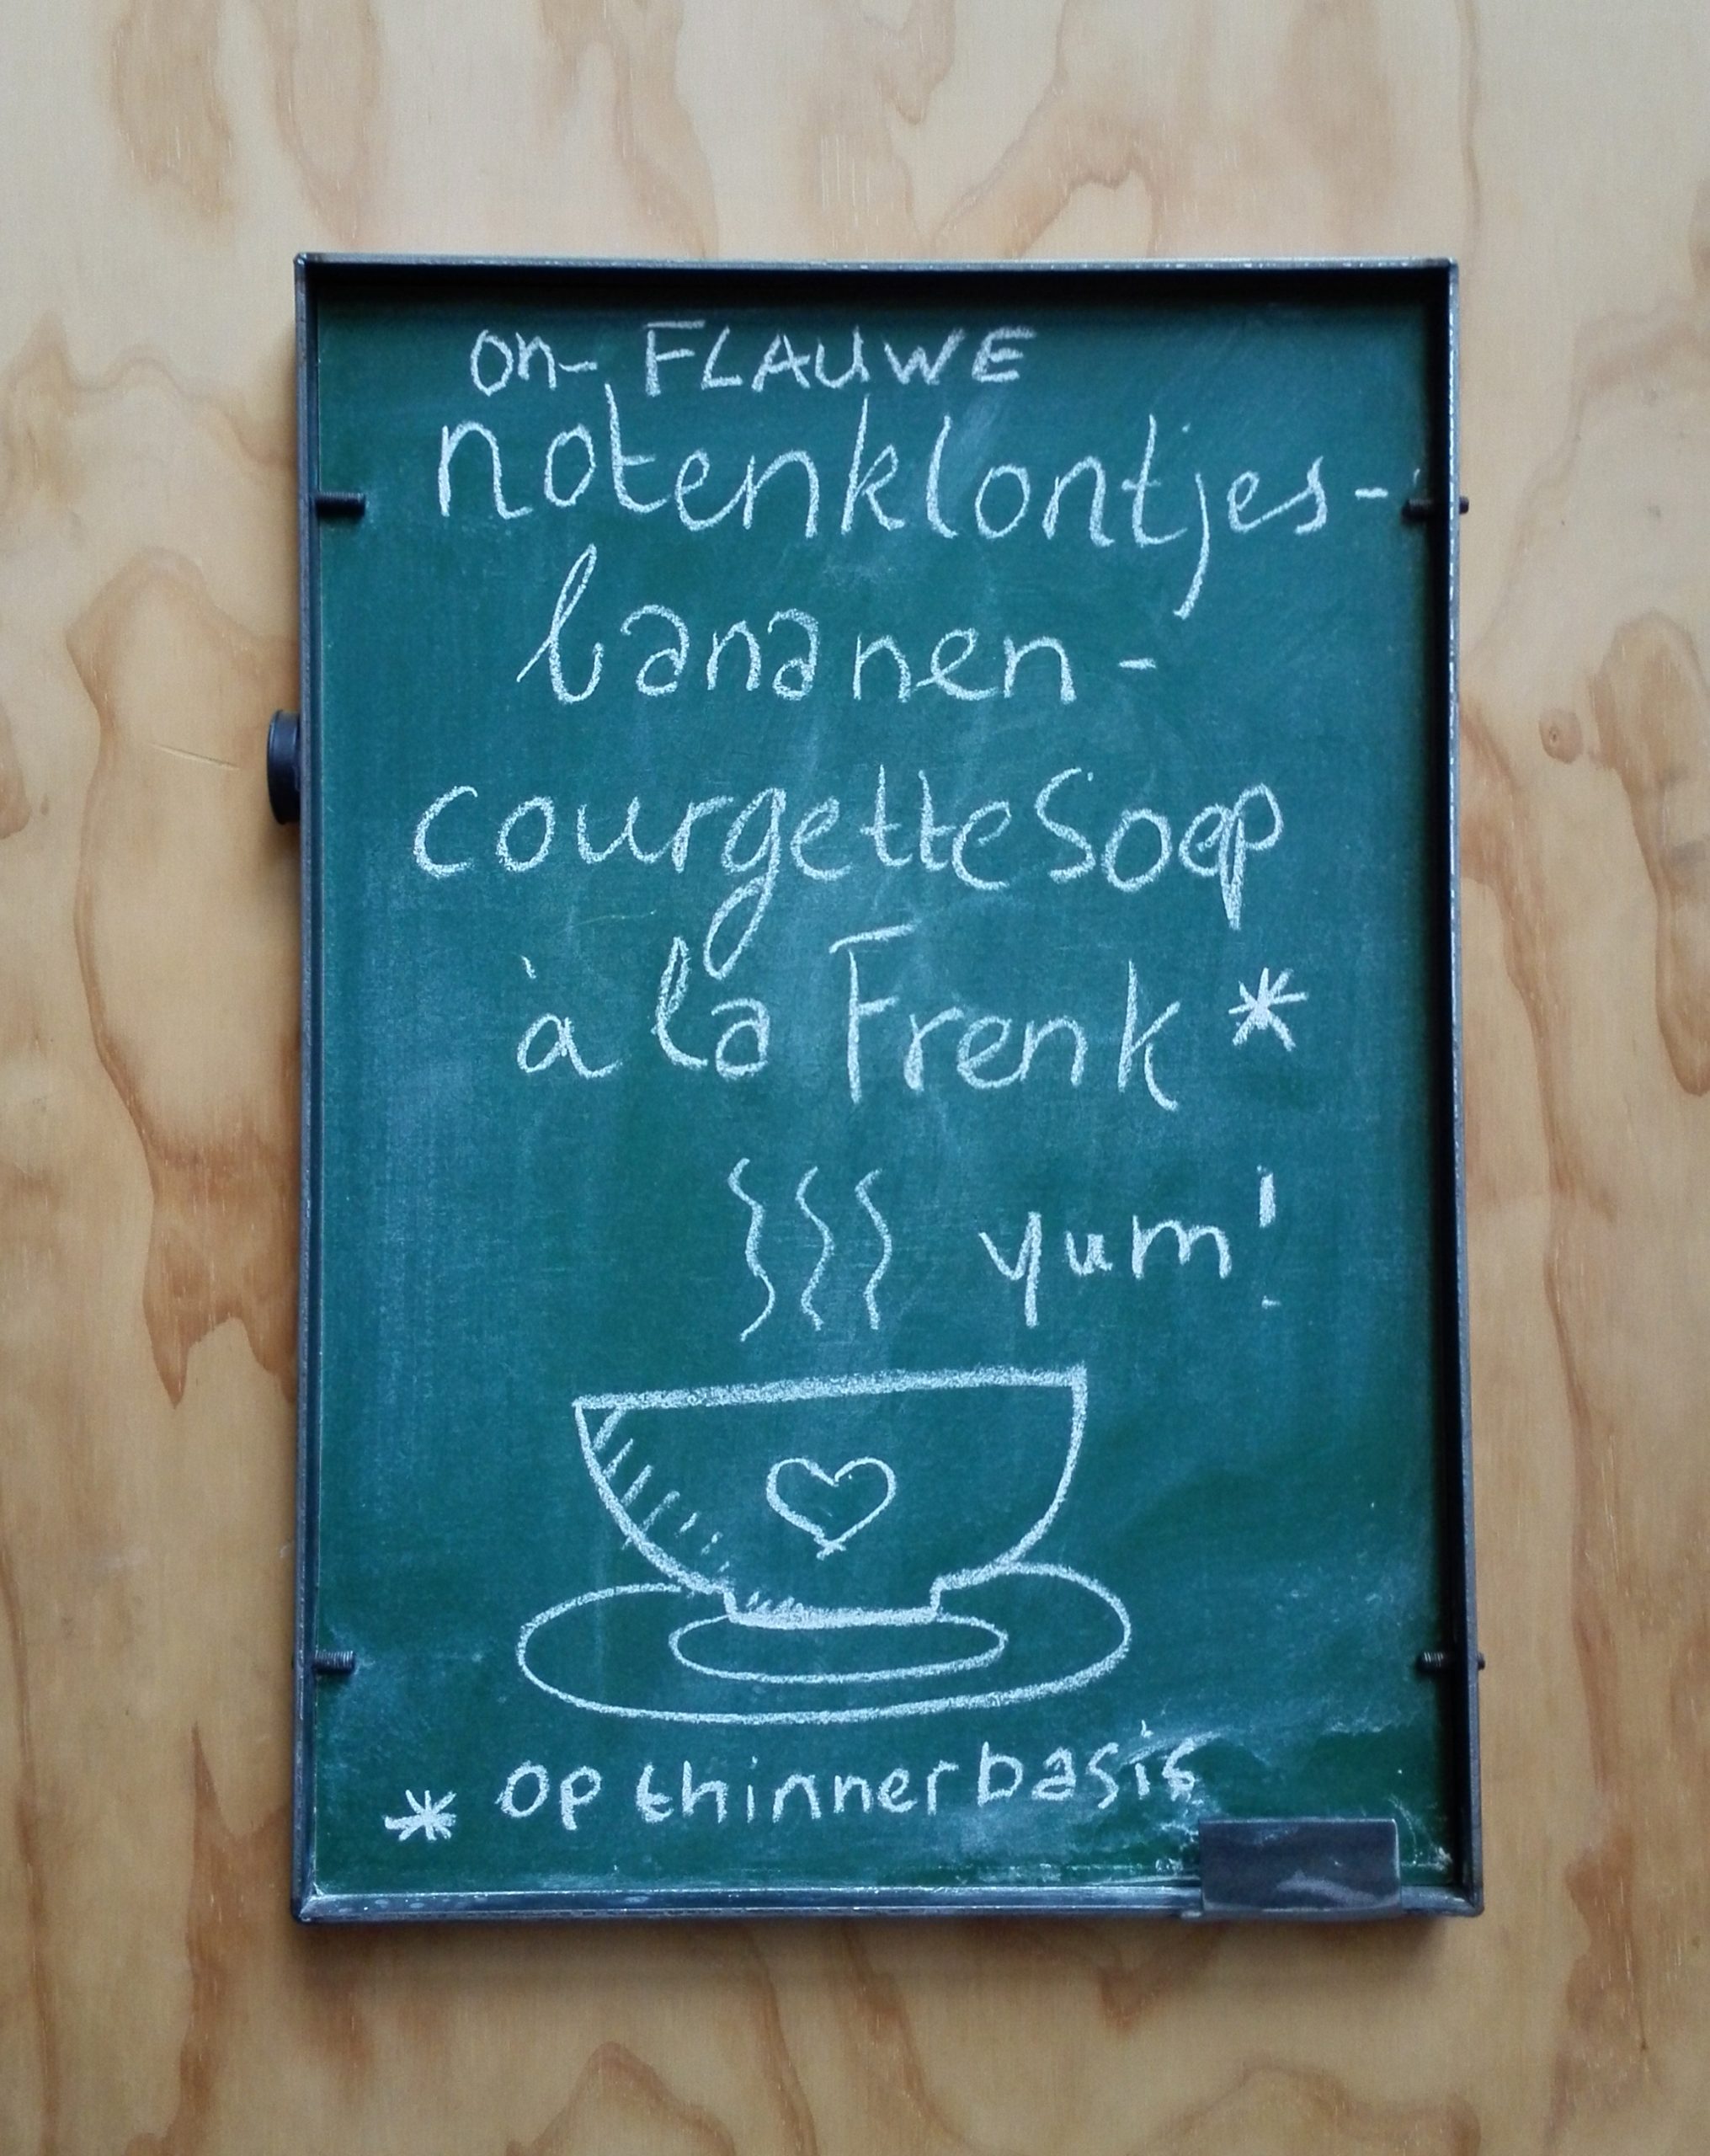 on-FLAUWE
notenklontjes-
bananen-
courgetteSoep
à la Frenk *
yum!
* op thinnerbasis